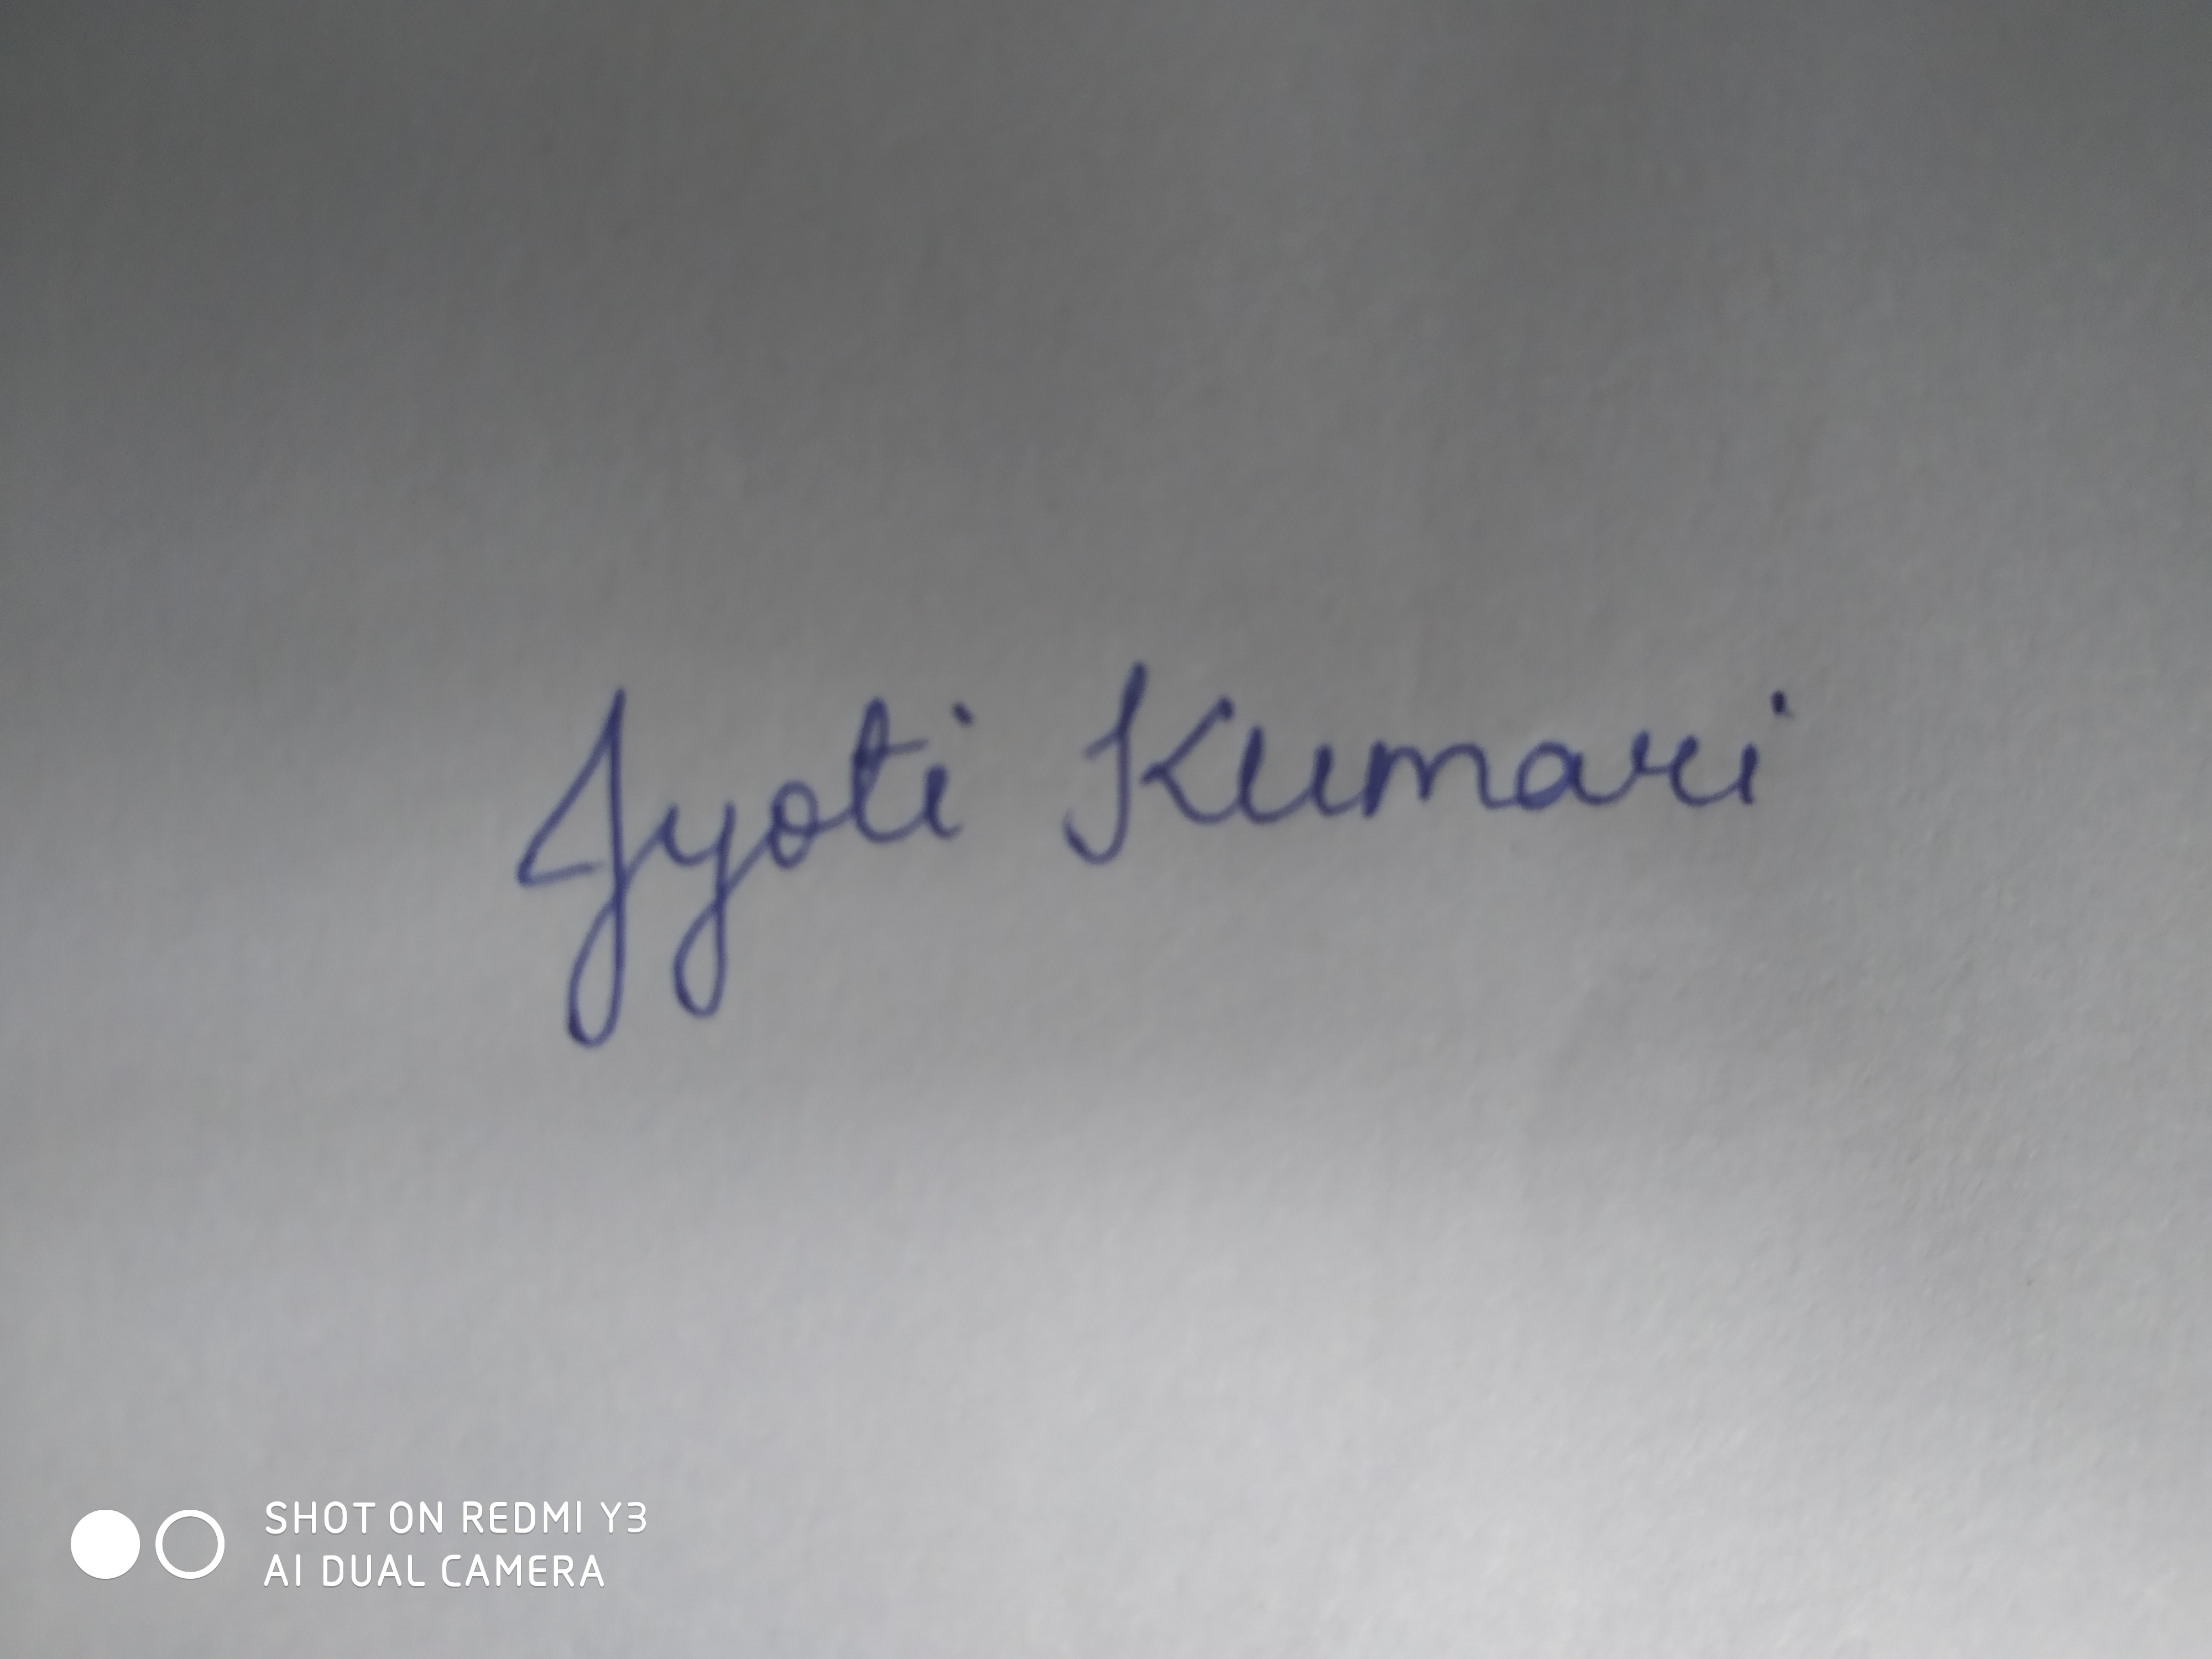 Jyoti Kumari
SHOT ON REDMI Y3
AI DUAL CAMERA